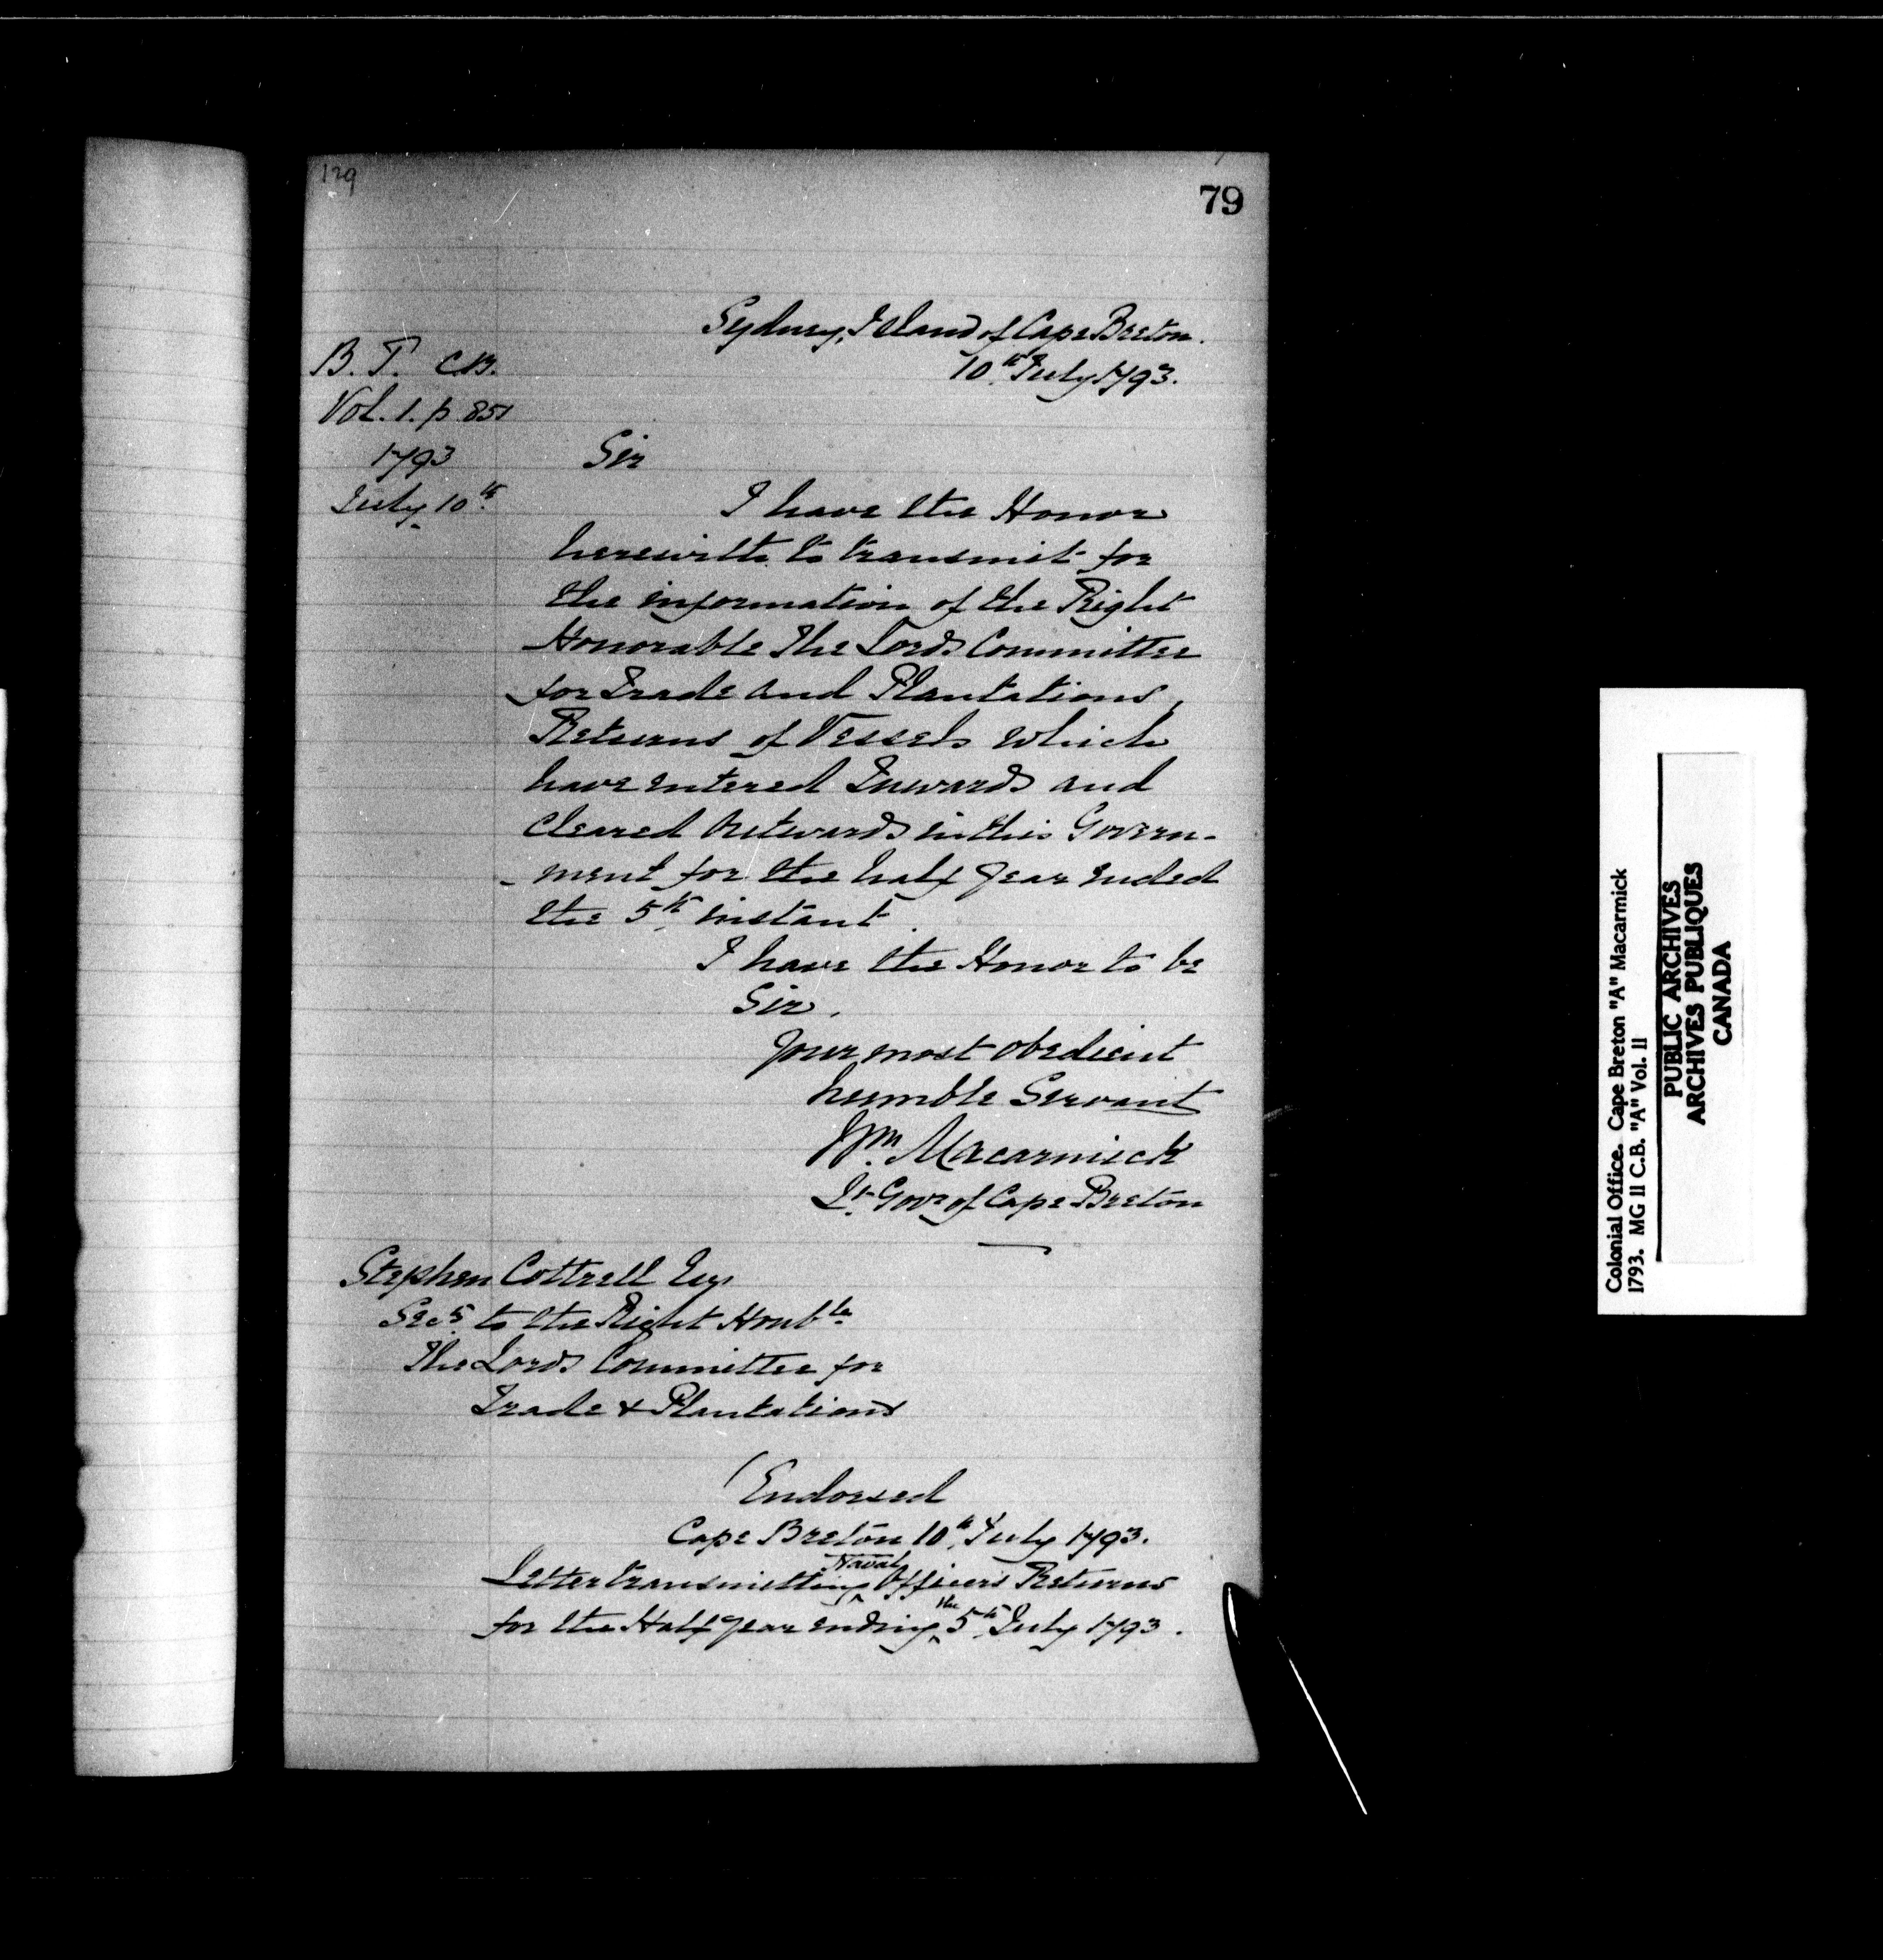 129
79
Sydney, Island of Cape Breton.
10th July 1793.
B. T. C.B.
Vol. 1. p. 851
1793
July 10th
Sir
I have the Honor
herewith to transmit for
the information of the Right
Honorable The Lords Committee
for Trade and Plantations,
Returns of Vessels which
have entered Inwards and
Cleared Outwards in this Govern-
- ment for the half year ended
the 5th instant.
I have the Honor to be
Sir,
Your most obedient
humble Servant
Wm. Macarmick
Lt. Govr of Cape Breton
Stephen Cottrell Esqr
Secy to the Right Honble
The Lords Committee for
Trade & Plantations
(Endorsed
Cape Breton 10th July 1793.
Letter transmitting Naval Officers Returns
for the Half year ending the 5th July 1793.
Colonial Office. Cape Breton "A" Macarmick
1793. MG 11 C.B. "A" Vol. 11
PUBLIC ARCHIVES
ARCHIVES PUBLIQUES
CANADA